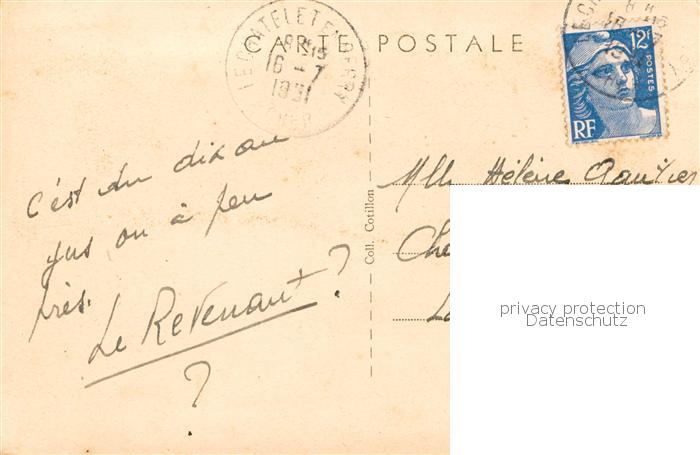 CARTE POSTALE
LE CHATELET EN BERRY
16 - 7
1951
CHER
12F
POSTES
RF
c'est du dix au
jus ou à peu
près.
Le Revenant ?
?
Coll. Cotillon
Mlle Hélène Gautier
Che
privacy protection
Datenschutz